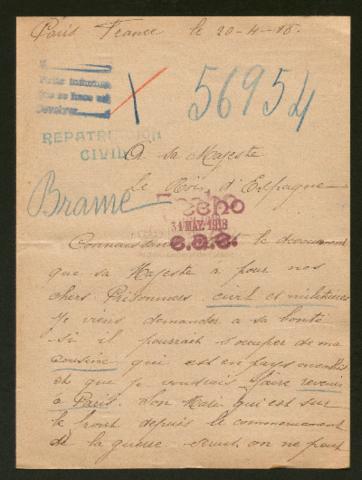 Paris France le 20-4-18.
56954
X
REPATRIACION
CIVIL
A sa Majesté
Le Roi d'Espagne
Brame
Hecho
31 MAY. 1918
Connaissant le
que sa Majesté a pour nos
chers Prisonniers civil et militaires
Je viens demander a sa bonté
si il pourrait s'occuper de ma
cousine qui est en pays envahis
et que je voudrais faire revenir
à Paris. Son Mari qui est sur
le front depuis le commencement
de la guerre on ne peut